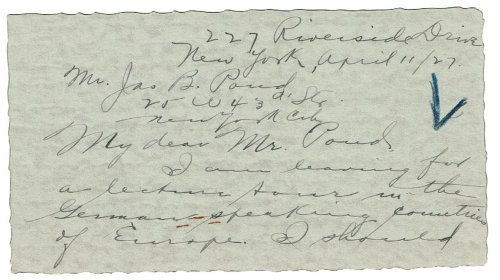 227 Riverside Drive
New York, April 11/27.
Mr. Jas B. Pond
25 W 43d Str.
New York City
My dear Mr. Pond,
I am leaving for
a lecture tour in the
German-speaking countries
of Europe. I should